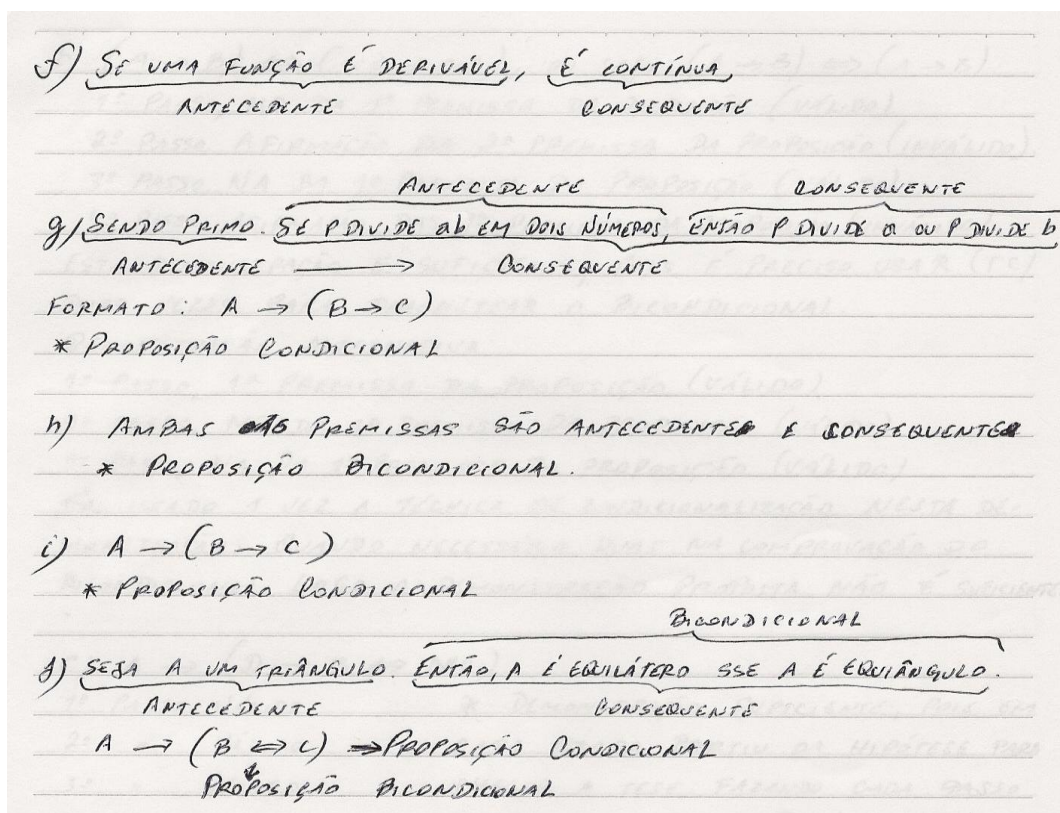 f) SE UMA FUNÇÃO É DERIVÁVEL, É CONTÍNUA
ANTECEDENTE CONSEQUENTE
ANTECEDENTE CONSEQUENTE
g) SENDO PRIMO. SE P DIVIDE ab EM DOIS NÚMEROS, ENTÃO P DIVIDE a OU P DIVIDE b
ANTECEDENTE → CONSEQUENTE
FORMATO: A → (B → C)
* PROPOSIÇÃO CONDICIONAL
h) AMBAS AS PREMISSAS SÃO ANTECEDENTE E CONSEQUENTE
* PROPOSIÇÃO BICONDICIONAL.
i) A → (B → C)
* PROPOSIÇÃO CONDICIONAL
BICONDICIONAL
j) SEJA A UM TRIÂNGULO. ENTÃO, A É EQUILÁTERO SSE A É EQUIÂNGULO.
ANTECEDENTE CONSEQUENTE
A → (B ⇔ C) ⇒ PROPOSIÇÃO CONDICIONAL
PROPOSIÇÃO BICONDICIONAL